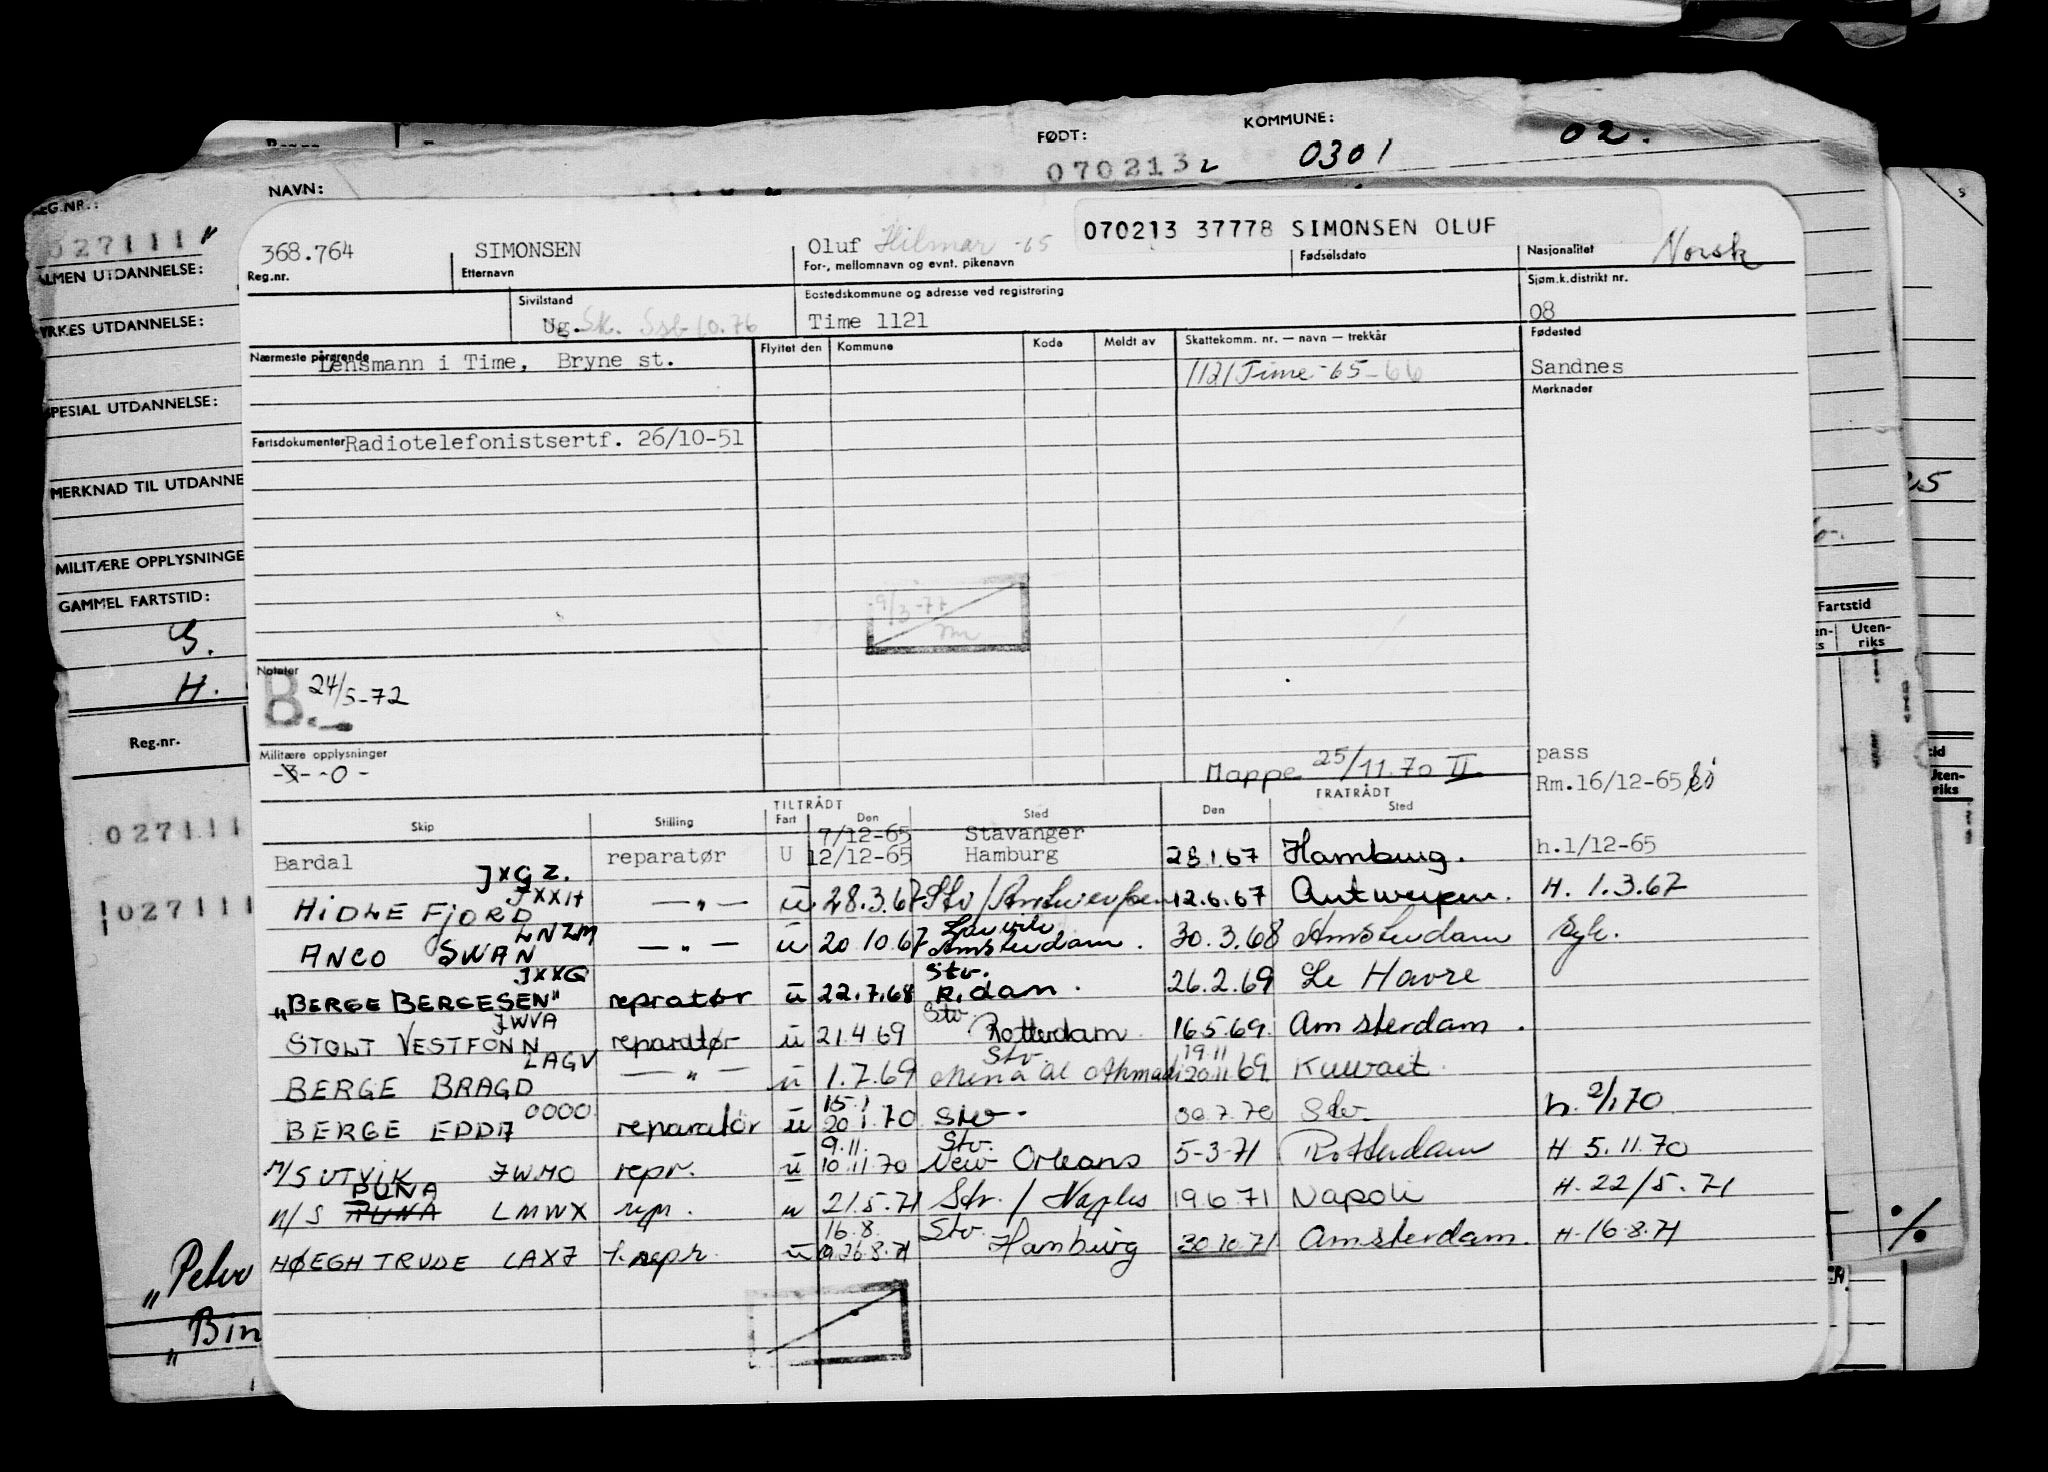 FØDT: KOMMUNE:
0702132 0301 02.
NAVN:
REG.NR.:
027111
ALMEN UTDANNELSE:
YRKES UTDANNELSE:
SPESIAL UTDANNELSE:
MERKNAD TIL UTDANNE
MILITÆRE OPPLYSNINGE
GAMMEL FARTSTID:
S.
H.
Reg.nr.
027111
027111
„Peter
„Bin
Fartstid
Uten-
riks
070213 37778 SIMONSEN OLUF
368.764 SIMONSEN Oluf Hilmar -65 Norsk
Reg.nr. Etternavn For-, mellomnavn og evnt. pikenavn Fødselsdato Nasjonalitet
Sivilstand Bostedskommune og adresse ved registrering Sjøm.k.distrikt nr.
Ug. Sk. Ssb 10.76 Time 1121 08
Nærmeste pårørende Flyttet den Kommune Kode Meldt av Skattekomm. nr. — navn — trekkår Fødested
Lensmann i Time, Bryne st. 1121 Time -65-66 Sandnes
Merknader
Fartsdokumenter Radiotelefonistsertf. 26/10-51
9/3-77
Notater
B. 24/5-72
Militære opplysninger
-3- -0-
Mappe 25/11.70 II
pass
Rm.16/12-65
TILTRÅDT FRATRÅDT
Skip Stilling Fart Den Sted Den Sted
7/12-65 Stavanger
Bardal reparatør U 12/12-65 Hamburg 23.1.67 Hamburg. h.1/12-65
JXGZ.
JXXH
HIDLEFJORD —„— u 28.3.67 Stv/Antwerpen 12.6.67 Antwerpen. H. 1.3.67
LNZM
ANCO SWAN —„— u 20.10.67 Amsterdam. 30.3.68 Amsterdam Syk.
JXXG Stv.
„BERGE BERGESEN" repratør u 22.7.68 R.dam. 26.2.69 Le Havre
JWVA Stv
STOLT VESTFONN reparatør u 21.4.69 Rotterdam 16.5.69. Amsterdam.
LAGV Stv. 19.11
BERGE BRAGD —„— u 1.7.69 Mena al Ahmadi 20.11.69 Kuwait.
0000 15.1
BERGE EDDA reparatør u 20.1.70 Stv. 30.7.70 Stv h. 2/1.70
9.11. Stv.
M/S UTVIK JWMO repr. u 10.11.70 New Orleans 5-3-71 Rotterdam H 5.11.70
PUNA
M/S PUNA LMWX repr. u 21.5.71 Stv. / Naples 19.6.71 Napoli H. 22/5.71
16.8. Stv.
HØEGH TRUDE LAXJ 1. repr. u 26.8.71 Hamburg 30.10.71 Amsterdam. H. 16.8.71